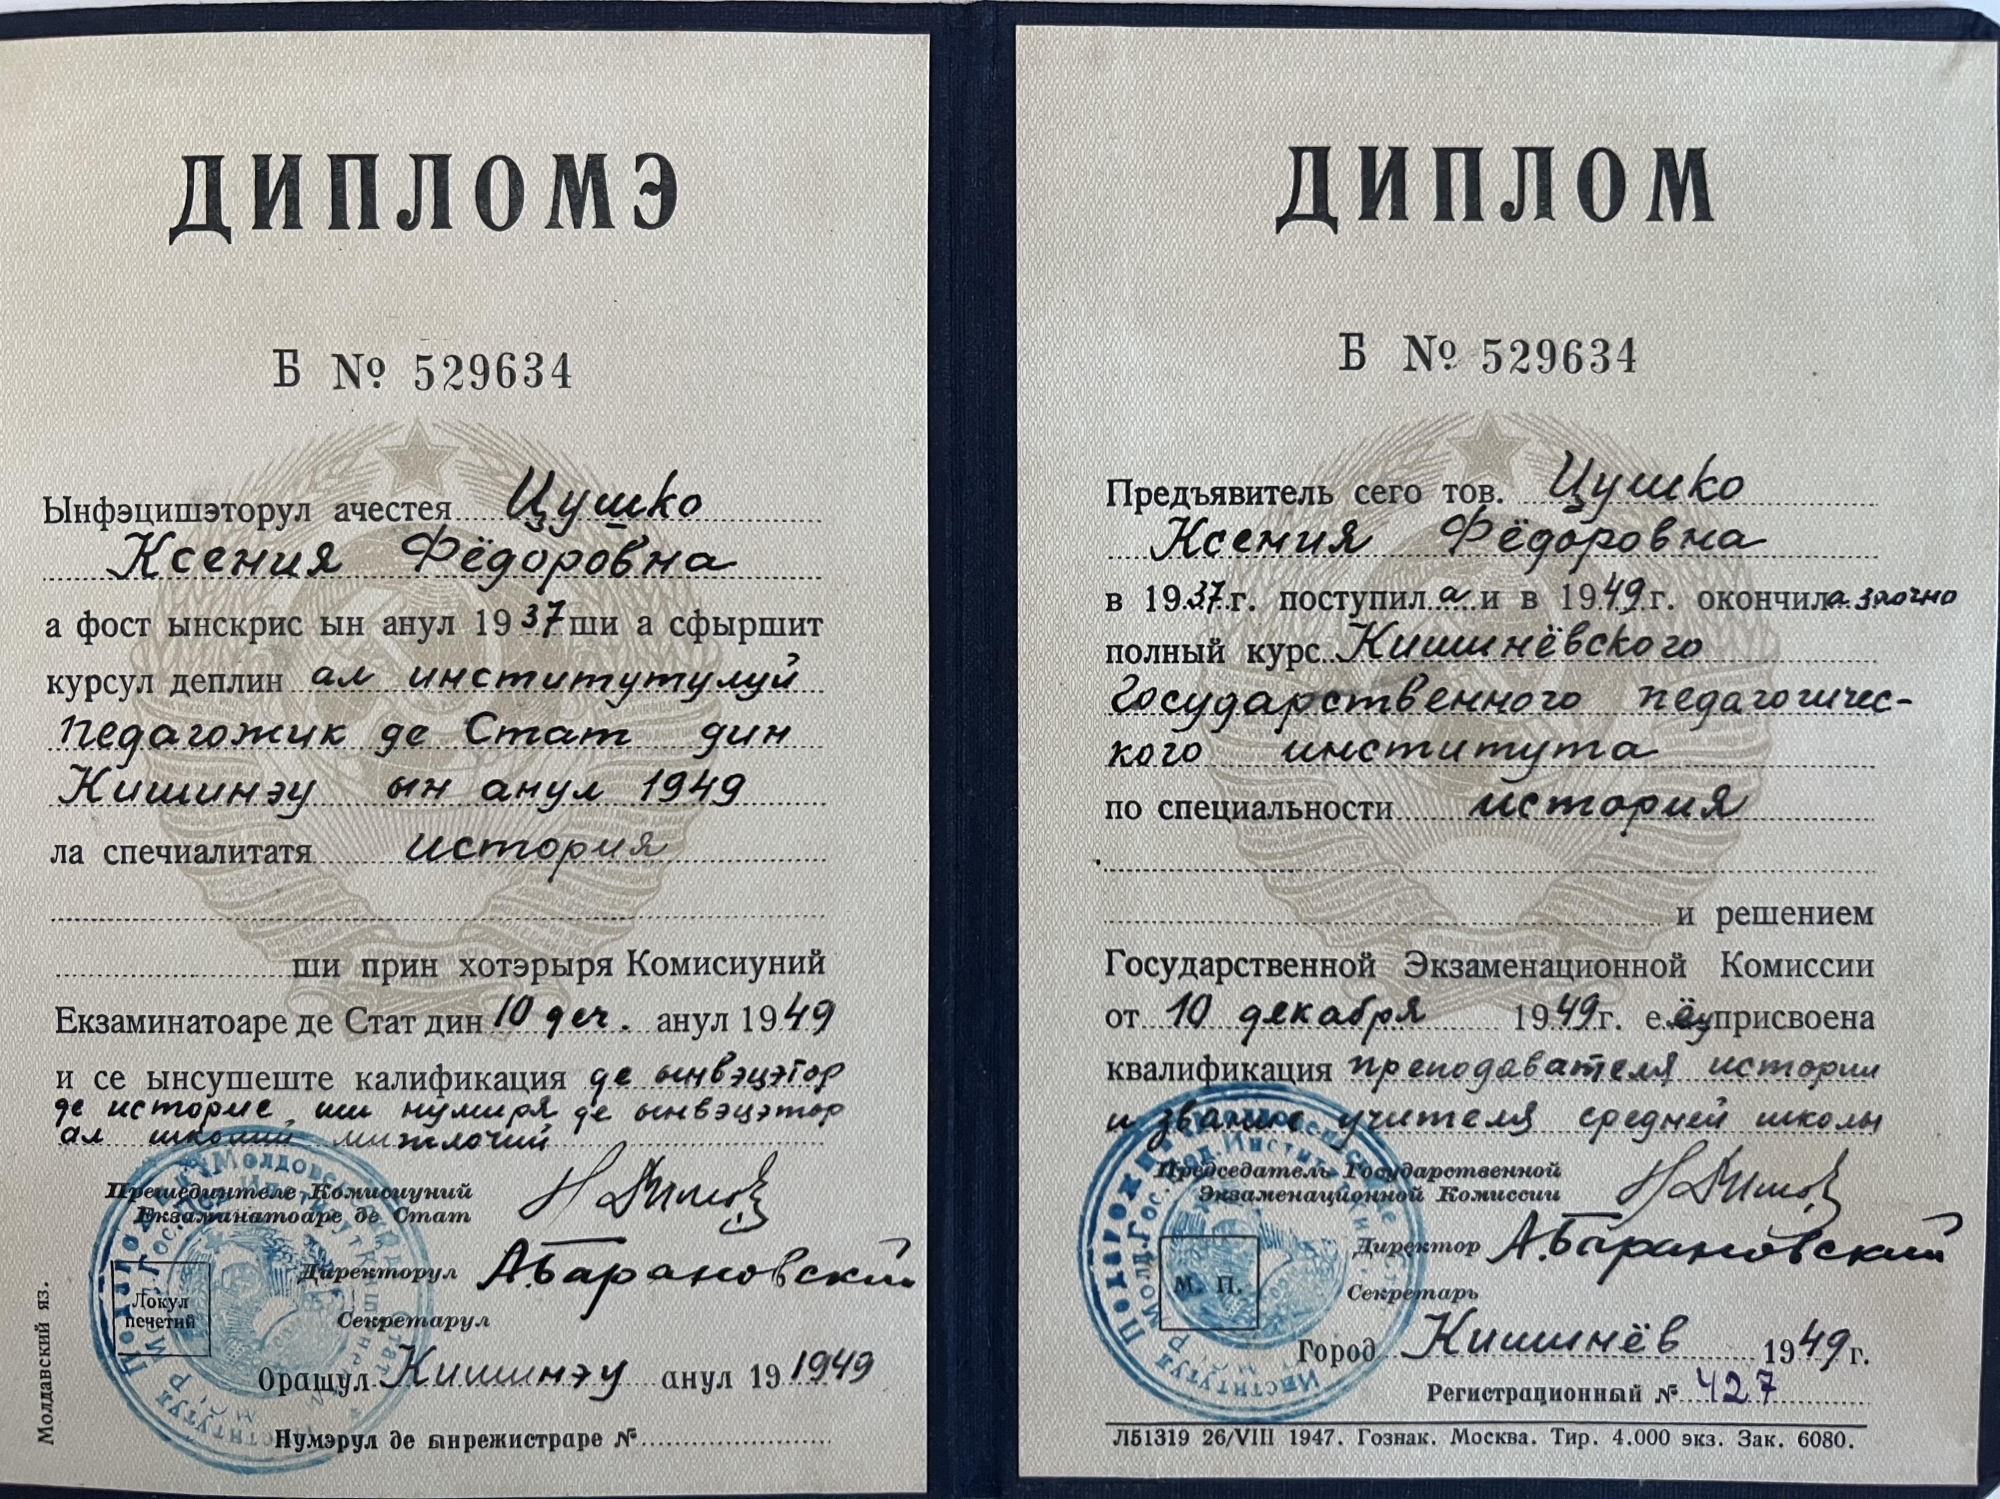 ДИПЛОМЭ
Б № 529634
Ынфэцишэторул ачестея Цушко
Ксения Фёдоровна
а фост ынскрис ын анул 1937 ши а сфыршит
курсул деплин ал институтулуй
Педагожик де Стат дин
Кишинэу ын анул 1949
ла спечиалитатя история
ши прин хотэрыря Комисиуний
Екзаминатоаре де Стат дин 10 деч. анул 1949
и се ынсушеште калификация де ынвэцэтор
де историе ши нумиря де ынвэцэтор
ал школий мижлочий
Прешединтеле Комисиуний
Екзаманатоаре де Стат
Директорул А.Барановский
Локул
печетий
Секретарул
Орашул Кишинэу анул 19 1949
Нумэрул де ынрежистраре №
Молдавский яз.
ДИПЛОМ
Б № 529634
Предъявитель сего тов. Цушко
Ксения Фёдоровна
в 1937 г. поступила и в 1949 г. окончила заочно
полный курс Кишинёвского
Государственного педагогичес-
кого института
по специальности история
и решением
Государственной Экзаменационной Комиссии
от 10 декабря 1949 г. ей присвоена
квалификация преподавателя истории
и звание учителя средней школы
Председатель Государственной
Экзаменационной Комиссии
Директор А.Барановский
М. П.
Секретарь
Город Кишинёв 1949 г.
Регистрационный № 427
Л51319 26/VIII 1947. Гознак. Москва. Тир. 4.000 экз. Зак. 6080.